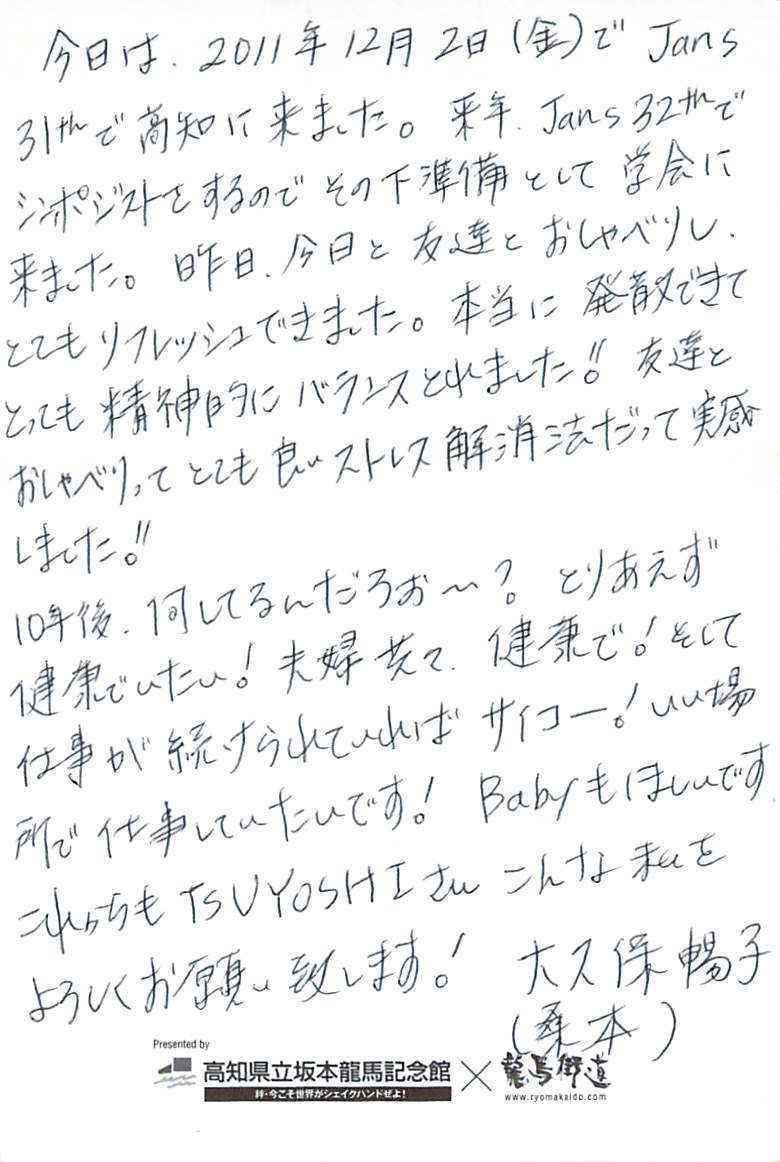 今日は、2011年12月2日(金)で Jans
31thで高知に来ました。来年、Jans 32thで
シンポジストをするので その下準備として 学会に
来ました。昨日、今日と 友達と おしゃべりし、
とてもリフレッシュできました。本当に 発散できて
とっても 精神的に バランスとれました!! 友達と
おしゃべりって とても 良いストレス 解消法だって 実感
しました!!
10年後、何してるんだろぉ〜? とりあえず
健康でいたい! 夫婦共々、健康で! そして
仕事が 続けられていれば サイコー! いい場
所で 仕事していたいです! Babyもほしいです
これからも TSUYOSHIさん こんな 私を
よろしくお願い致します! 大久保 暢子
(桑本)
Presented by
高知県立坂本龍馬記念館 × 龍馬街道
絆・今こそ世界がシェイクハンドぜよ!
www.ryomakaido.com